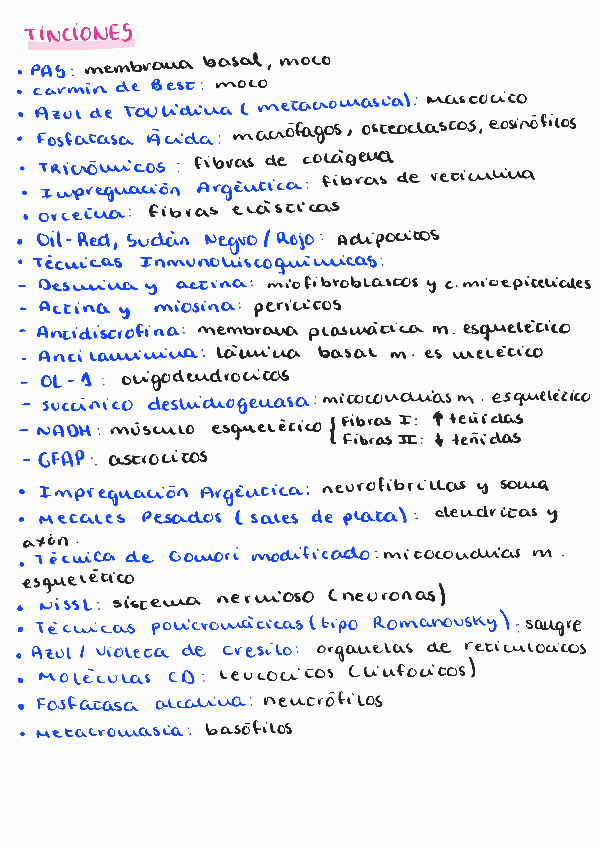 TINCIONES
• PAS: membrana basal, moco
• Carmín de Best: moco
• Azul de Toulidina (metacromasia): Mastocito
• Fosfatasa Ácida: macrófagos, osteoclastos, eosinófilos
• Tricrómicos: fibras de colágena
• Impregnación Argéntica: fibras de reticulina
• Orceína: fibras elásticas
• Oil-Red, Sudán Negro/Rojo: Adipocitos
• Técnicas Inmunohistoquímicas:
- Desmina y actina: miofibroblastos y c. mioepiteliales
- Actina y miosina: pericitos
- Antidistrofina: membrana plasmática m. esquelético
- Antilaminina: lámina basal m. esquelético
- OL-1: oligodendrocitos
- Succínico deshidrogenasa: mitocondrias m. esquelético
- NADH: músculo esquelético { Fibras I: ↑ teñidas
Fibras II: ↓ teñidas
- GFAP: astrocitos
• Impregnación Argéntica: neurofibrillas y soma
• Metales Pesados (sales de plata): dendritas y
axón.
• Técnica de Gomori modificado: mitocondrias m.
esquelético
• Nissl: sistema nervioso (neuronas)
• Técnicas policromáticas (tipo Romanovsky): sangre
• Azul / Violeta de cresilo: organelas de reticulocitos
• Moléculas CD: leucocitos (linfocitos)
• Fosfatasa alcalina: neutrófilos
• Metacromasia: basófilos